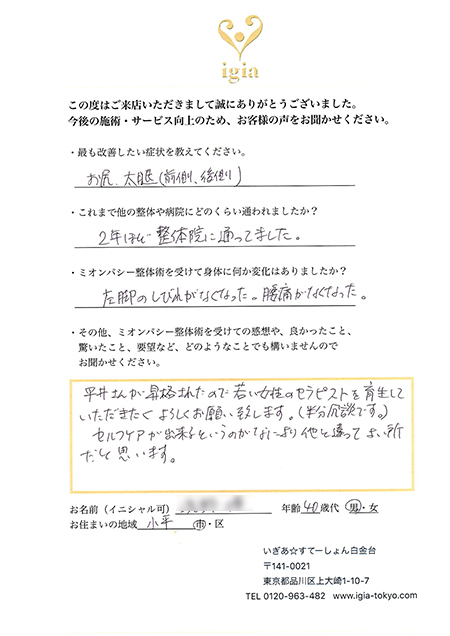 igia
この度はご来店いただきまして誠にありがとうございました。
今後の施術・サービス向上のため、お客様の声をお聞かせください。
・最も改善したい症状を教えてください。
お尻、太腿(前側、後側)
・これまで他の整体や病院にどのくらい通われましたか?
2年ほど整体院に通ってました。
・ミオンパシー整体術を受けて身体に何か変化はありましたか?
左脚のしびれがなくなった。腰痛がなくなった。
・その他、ミオンパシー整体術を受けての感想や、良かったこと、
驚いたこと、要望など、どのようなことでも構いませんので
お聞かせください。
平井さんが昇格されたので若い女性のセラピストを育生して
いただきたくよろしくお願い致します。(半分冗談です。)
セルフケアが出来るというのがなにより他と違ってよい所
だと思います。
お名前(イニシャル可) 年齢 40 歳代 男・女
お住まいの地域 小平 市・区
いぎあ☆すてーしょん白金台
〒141-0021
東京都品川区上大崎1-10-7
TEL 0120-963-482 www.igia-tokyo.com